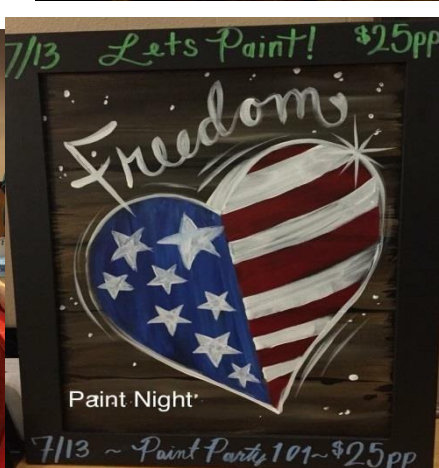 7/13 Lets Paint! $25pp
Freedom
Paint Night
7/13 ~ Paint Party 101~$25pp